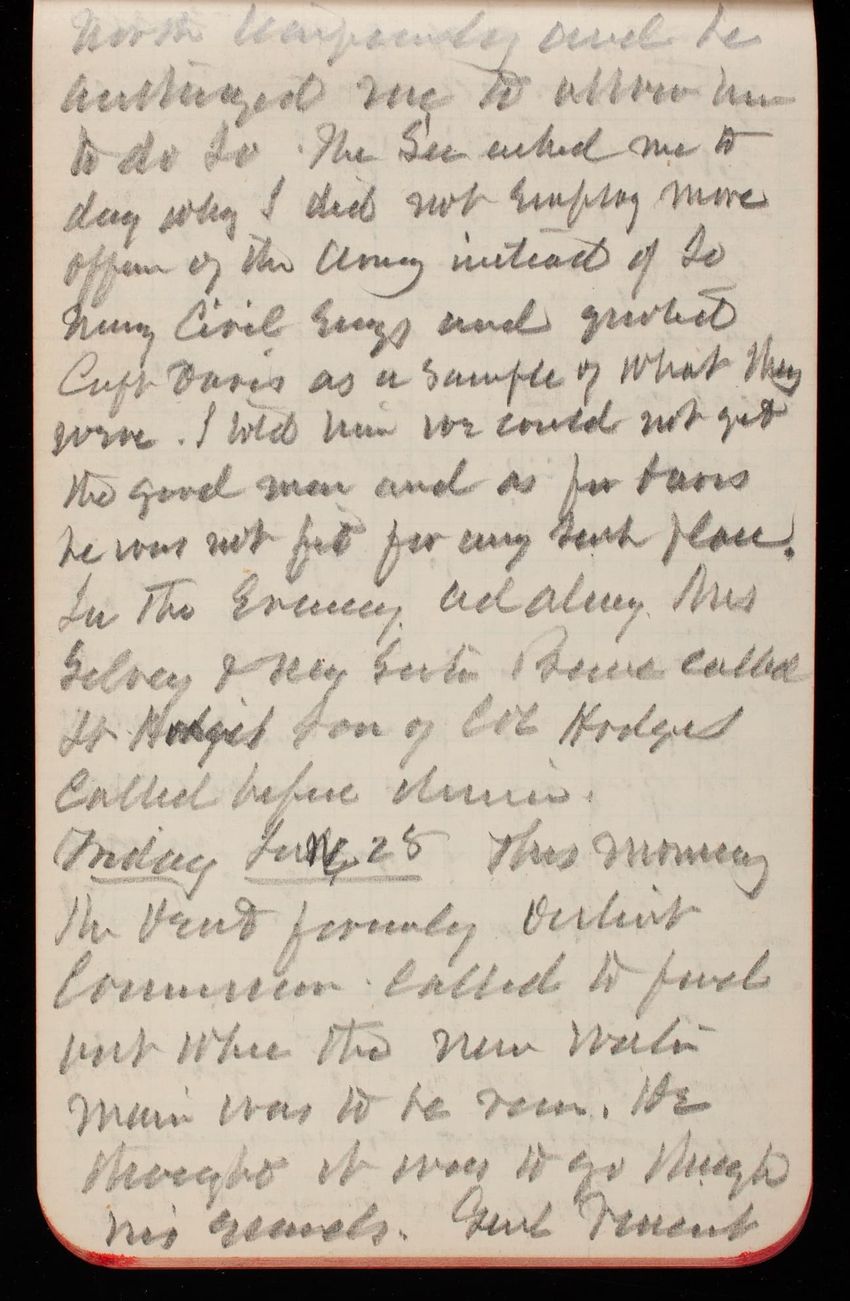 North and he
authorized me to allow him
to do so. The Sec asked me to
day why I did not employ more
officers of the Army instead of so
many Civil Engs and quoted
Capt Davis as a sample of what they
were. I told him we could not get
the good men and as for Davis
he was not fit for any such place.
In the Evening Mrs
Selvey & called
Lt Hodges son of Col Hodges
called before dinner.
Friday 28 This morning
the formerly District
called to find
out where the new water
main was to be run. He
thought it was to go through
his grounds. Genl